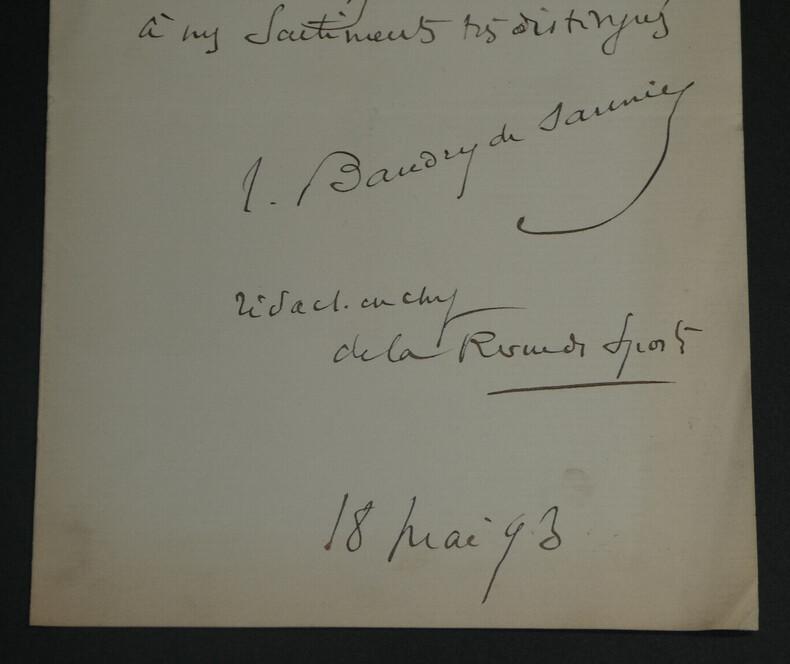 à mes Sentiments très distingués
L. Baudry de Saunier
rédact. en chef
de la Revue des Sports
18 mai 93